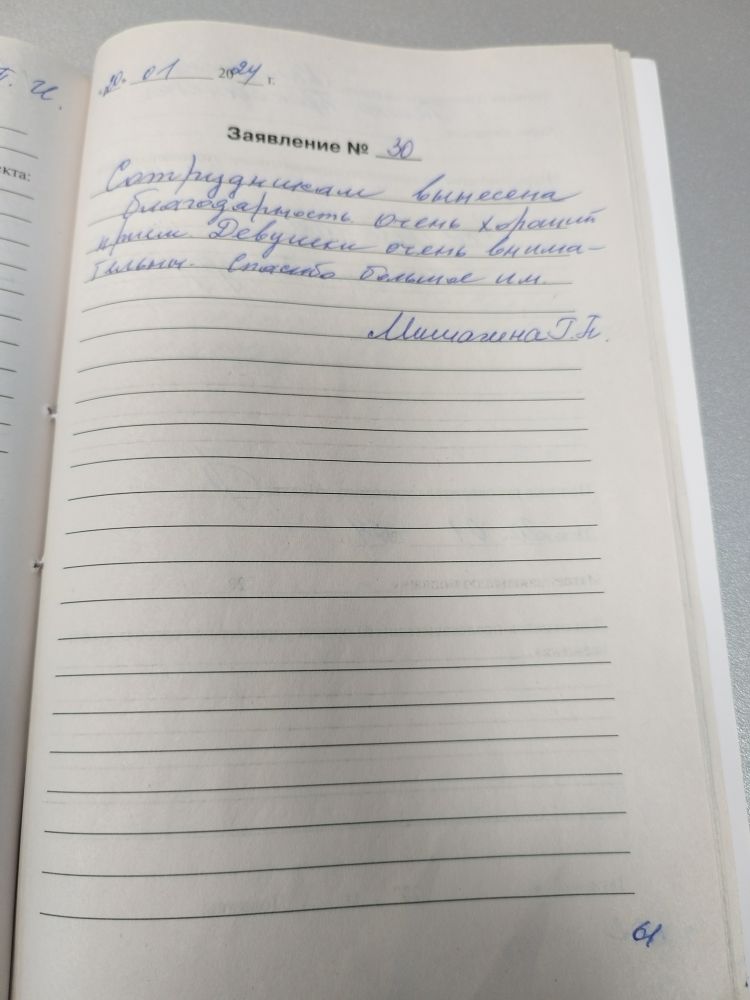 Т. И.
кта:
«20» 01 2024 г.
Заявление № 30
Сотрудникам вынесена
благодарность очень хороший
приём Девушки очень внима-
тельны. Спасибо большое им.
Г.П.
61